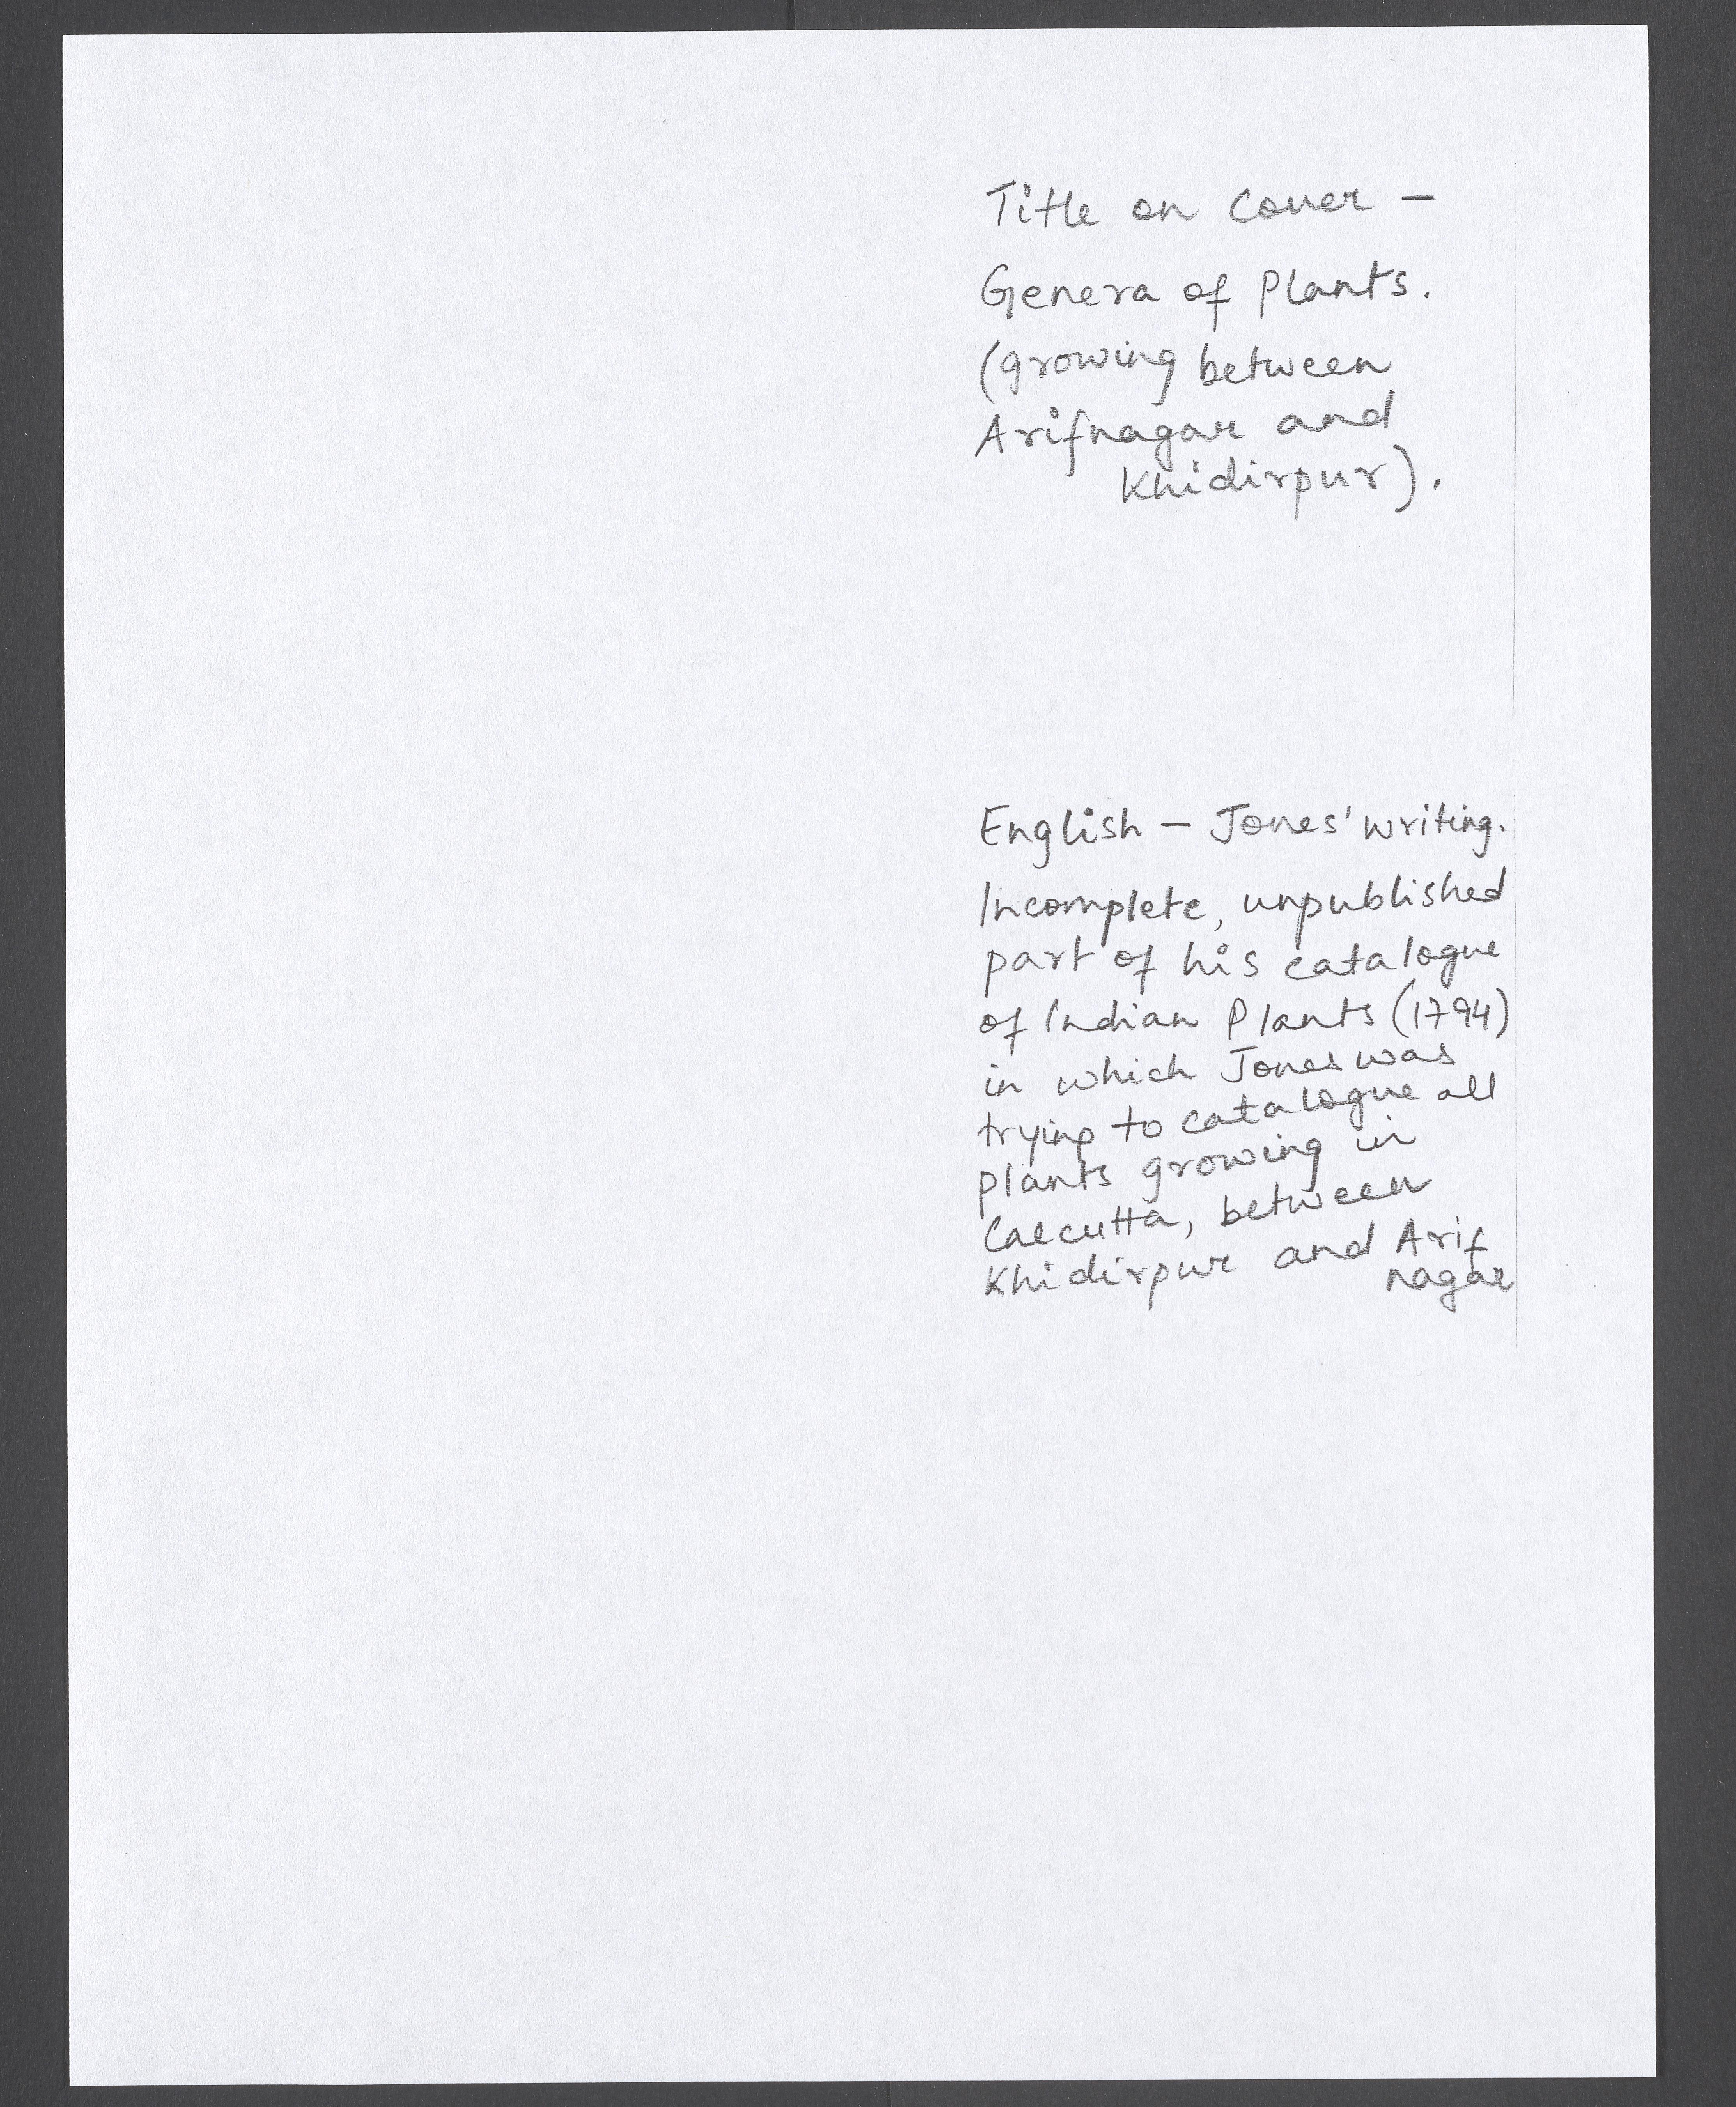 Title on Cover –
Genera of Plants.
(growing between
Arifnagar and
Khidirpur).
English – Jones' writing.
Incomplete, unpublished
part of his catalogue
of Indian Plants (1794)
in which Jones was
trying to catalogue all
plants growing in
Calcutta, between
Khidirpur and Arif
nagar